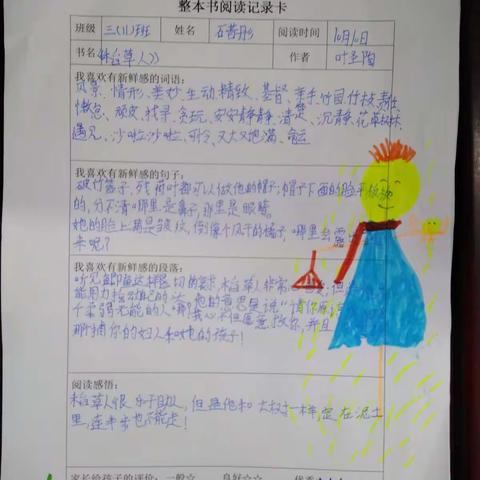 整本书阅读记录卡
班级 三(1)班 姓名 石 阅读时间 10月10日
书名《稻草人》 作者 叶圣陶
我喜欢有新鲜感的词语:
风景、情形、美妙、生动、精致、基督、竹园、竹枝、
懒怠、顽皮、找寻、贪玩、安安静静、清楚、沉静、花草树林、
遇见、沙啦沙啦、可怜、又大又饱满、命运
我喜欢有新鲜感的句子:
破竹篮子、残荷叶都可以做他的帽子;帽子下面的脸平板板
的,分不清哪里是鼻子,哪里是眼睛。
她的脸上满是皱纹,倒像个风干的橘子,哪里会露
来呢?
我喜欢有新鲜感的段落:
听见鲫鱼这样恳切的哀求,稻草人非常心
能用力摇动自己的头。他的意思是说“请你原
个柔弱无能的人哪!我心不但愿意救你,并且
那捕你的妇人和她的孩子!
阅读感悟:
稻草人很乐于助人,但是他和大树一样,定在泥土
里,连半步也不能走!
家长给孩子的评价: 一般☆ 良好☆☆ 优秀